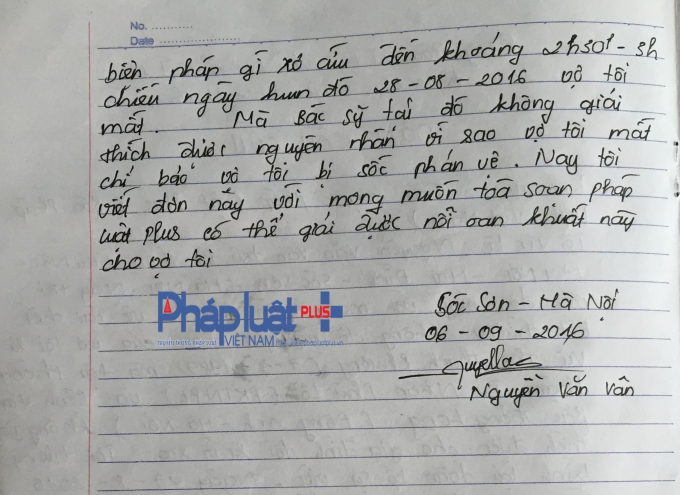 No. ............
Date ........................
biện pháp gì xỏ cứu đến khoảng 2h30' - 3h
chiều ngày hum đó 28-08-2016 vợ tôi
mất. Mà Bác sỹ tại đó không giải
thích được nguyên nhân vì sao vợ tôi mất
chỉ bảo vợ tôi bị sốc phản vệ. Nay tôi
viết đơn này với mong muốn tòa soạn pháp
luật plus có thể giải được nỗi oan khuất này
cho vợ tôi
Pháp luật PLUS+
VIỆT NAM
Sóc Sơn - Hà Nội
06-09-2016
Nguyễn Văn Vân